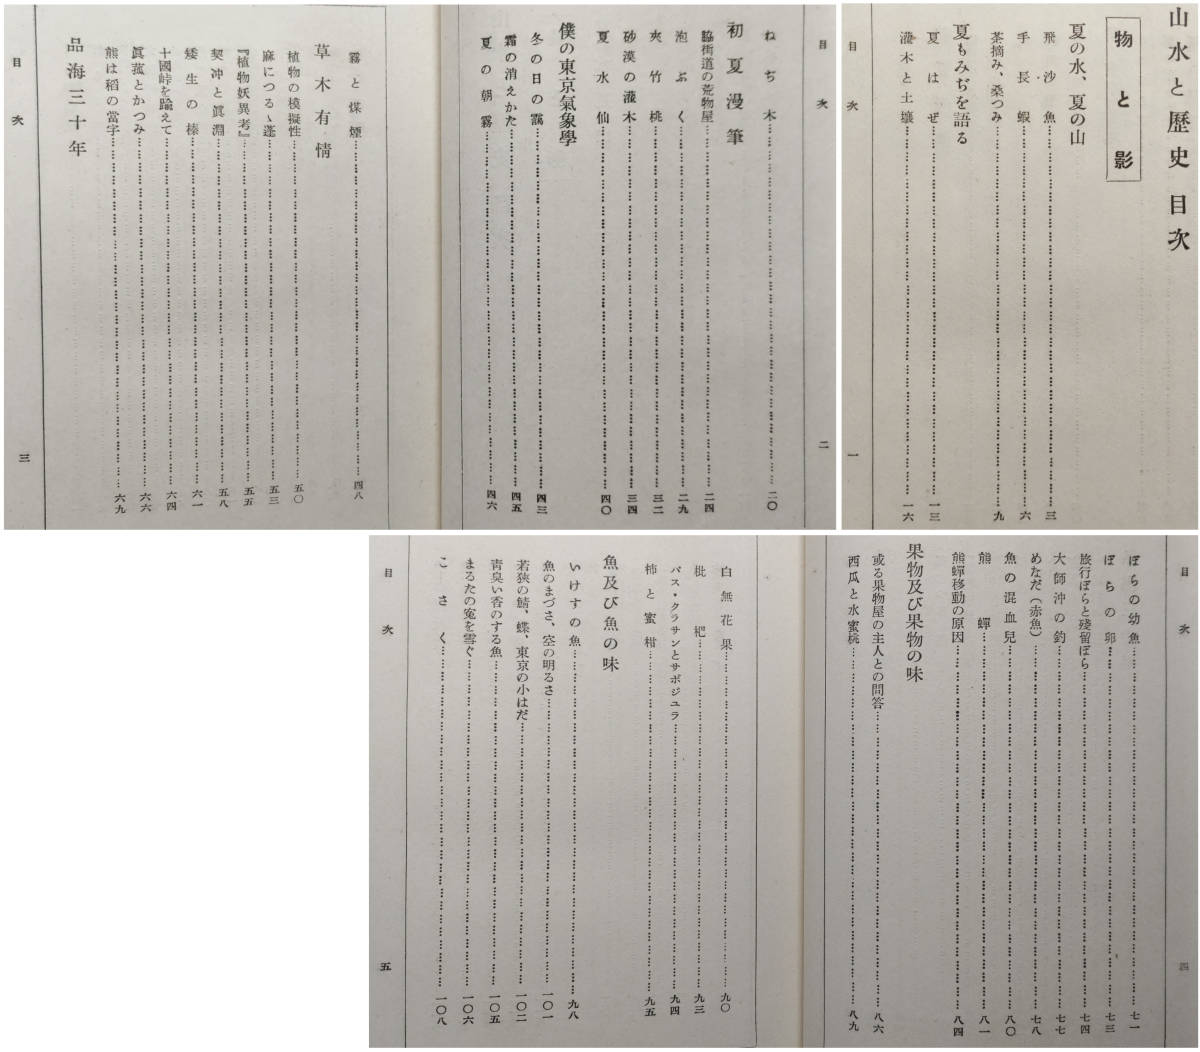 山水と歴史 目次
物と影
夏の水、夏の山
飛沙魚……三
手長蝦……六
茶摘み、桑つみ……九
夏もみぢを語る
夏はぜ……一三
灌木と土壤……一六
目次
一
目次
二
ねぢ木……二〇
初夏漫筆
脇街道の荒物屋……二四
泡ぶく……二九
夾竹桃……三二
砂漠の灌木……三四
夏水仙……四〇
僕の東京氣象學
冬の日の靄……四三
霜の消えかた……四五
夏の朝霧……四六
霧と煤煙……四八
草木有情
植物の模擬性……五〇
麻につるゝ蓬……五三
『植物妖異考』……五五
契冲と眞淵……五八
矮生の榛……六一
十國峠を踰えて……六四
眞菰とかつみ……六六
熊は稻の當字……六九
品海三十年
目次
三
目次
四
ぼらの幼魚……七一
ぼらの卵……七三
旅行ぼらと殘留ぼら……七四
大師沖の釣……七七
めなだ(赤魚)……七八
魚の混血兒……八〇
熊蟬……八一
熊蟬移動の原因……八四
果物及び果物の味
或る果物屋の主人との問答……八六
西瓜と水蜜桃……八九
白無花果……九〇
枇杷……九三
バス・クラサンとサポジユラ……九四
柿と蜜柑……九五
魚及び魚の味
いけすの魚……九八
魚のまづさ、空の明るさ……一〇一
若狹の鯖、鰈、東京の小はだ……一〇二
靑臭い香のする魚……一〇五
まるたの寃を雪ぐ……一〇六
こさく……一〇八
目次
五